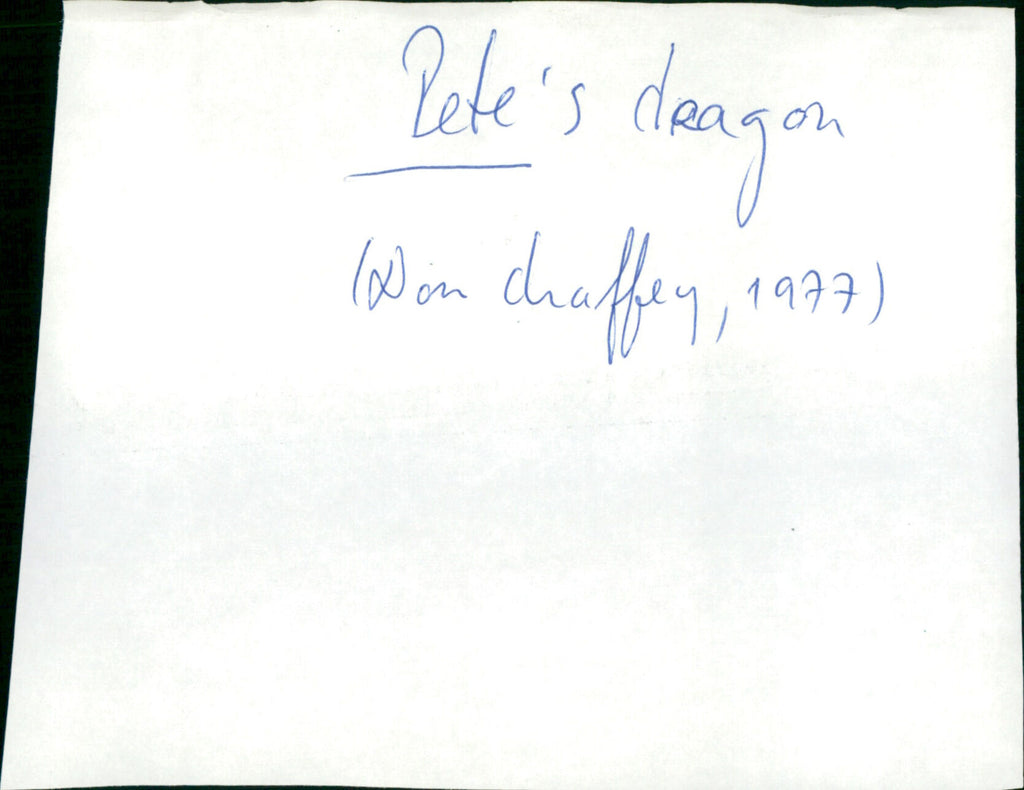 Pete's dragon
(Don Chaffey, 1977)